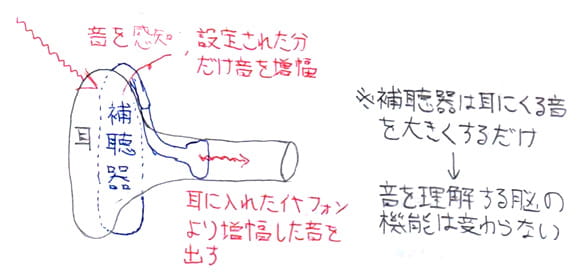 音を感知、設定された分
だけ音を増幅
耳
補聴器
耳に入れたイヤフォン
より増幅した音を
出す
※補聴器は耳にくる音
を大きくするだけ
↓
音を理解する脳の
機能は変わらない